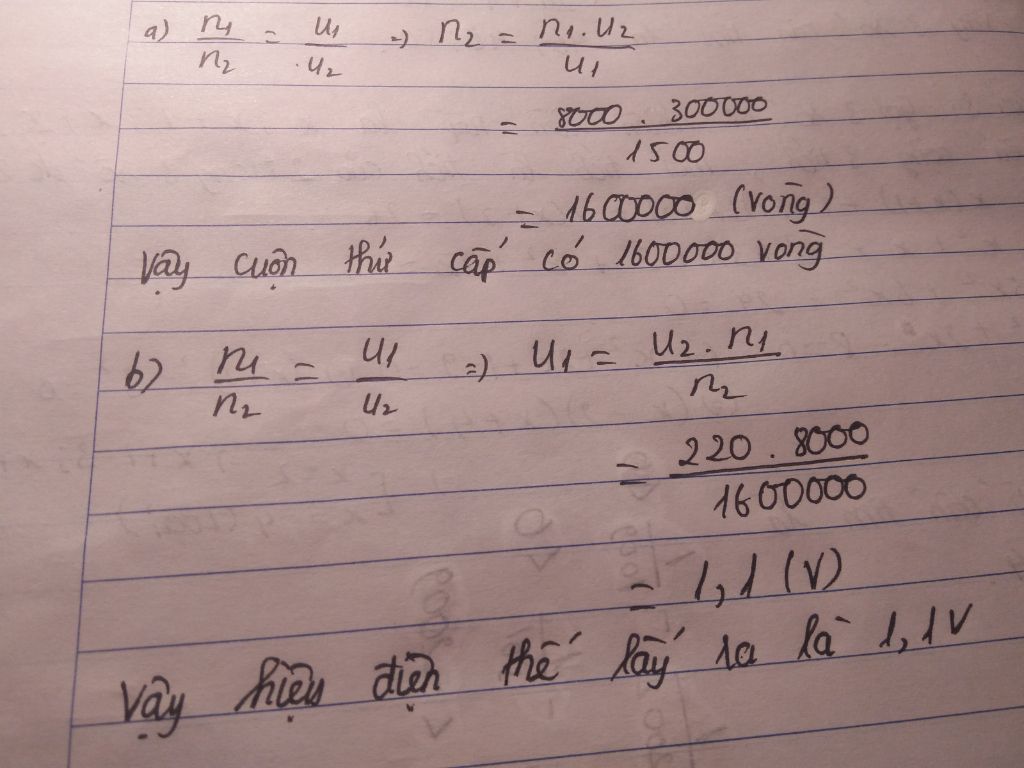 a) n1/n2 = u1/u2 => n2 = n1.u2/u1
= 8000 . 300000/1500
= 1600000 (vòng)
Vậy cuộn thứ cấp có 1600000 vòng
b) n1/n2 = u1/u2 => u1 = u2.n1/n2
= 220.8000/1600000
= 1,1 (V)
Vậy hiệu điện thế lấy ra là 1,1V